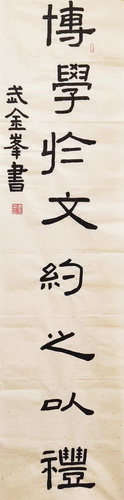 博學於文約之以禮
武金峯書